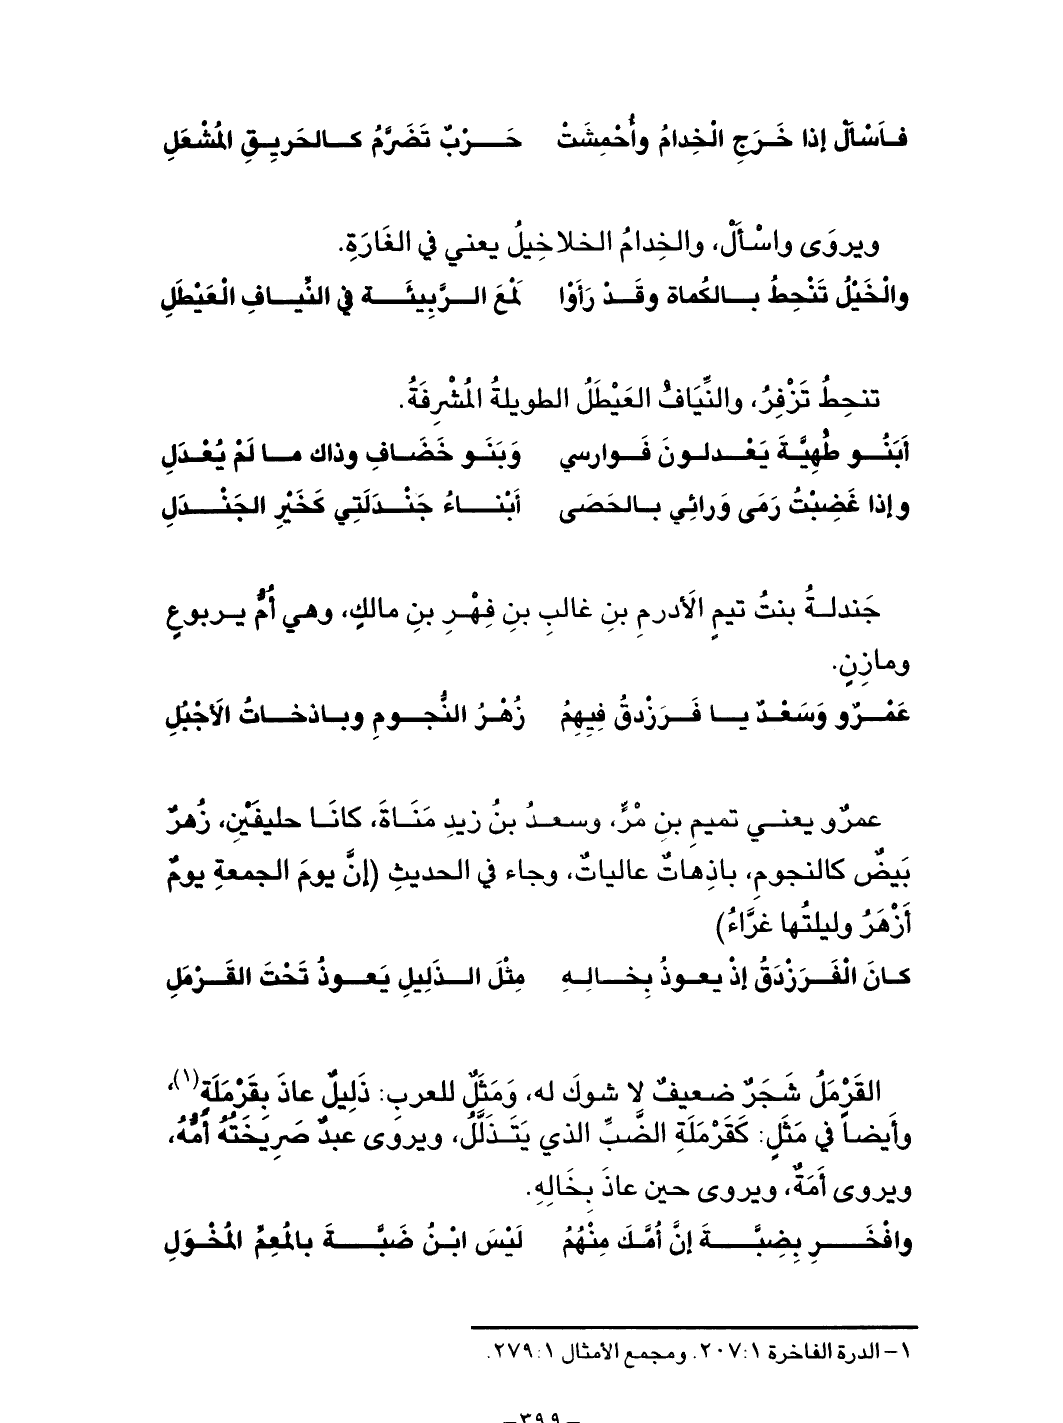 فَاسْأَلْ إذا خَرَجِ الْخِدامُ وأُحْمِشَتْ    حَرْبٌ تَضَرَّمُ كالحَرِيقِ المُشْعَلِ
ويروَى واسْأَلْ، والخِدامُ الخلاخِيلُ يعني في الغَارَةِ.
والْخَيْلُ تَنْحِطُ بالكُماة وقَدْ رَأَوْا    لَمْعَ الرَّبِيئَة في النِّيافِ الْعَيْطَلِ
تنحِطُ تَزْفِرُ، والنِّيَافُ العَيْطَلُ الطويلةُ المُشْرِفَةُ.
أَبَنُو طُهِيَّةَ يَعْدلونَ فَوارسي    وَبَنَو خَضَافِ وذاك ما لَمْ يُعْدَلِ
وإذا غَضِبْتُ رَمَى وَرائِي بالحَصَى    أَبْناءُ جَنْدَلَتِي كَخَيْرِ الجَنْدَلِ
جَندلةُ بنتُ تيمِ الأدرمِ بنِ غالبِ بنِ فِهْرِ بنِ مالكٍ، وهي أمُّ يربوعٍ
ومازِنٍ.
عَمْرٌو وَسَعْدٌ يا فَرَزْدقُ فِيهِمُ    زُهْرُ النُّجومِ وباذخاتُ الأجْبُلِ
عمرٌو يعني تميمِ بنِ مْرٍّ، وسعدُ بنُ زيدِ مَنَاةَ، كانَا حليفَيْنِ، زُهرٌ
بَيضٌ كالنجومِ، باذِهاتٌ عالياتٌ، وجاء في الحديثِ (إنَّ يومَ الجمعةِ يومٌ
أَزْهَرُ وليلتُها غرَّاءُ)
كانَ الْفَرَزْدَقُ إذْ يعوذُ بِخالِهِ    مِثْلَ الذَلِيلِ يَعوذُ تَحْتَ القَرْمَلِ
القَرْمَلُ شَجَرٌ ضعيفٌ لا شوكَ له، وَمَثَلٌ للعربِ: ذَلِيلٌ عاذَ بِقَرْمَلَةٍ(١)،
وأَيضاً في مَثَلٍ: كَقَرْمَلَةِ الضَّبِّ الذي يَتَذلَّلُ، ويروى عبدٌ صَرِيَختُهُ أمُّهُ،
ويروى أمَةٌ، ويروى حين عاذَ بِخَالِهِ.
وافْخَرِ بِضِبَّةَ إنَّ أُمَّكَ مِنْهُمُ    لَيْسَ ابْنُ ضَبَّةَ بالمُعِمِّ المُخْوَلِ
١- الدرة الفاخرة ٢٠٧:١. ومجمع الأمثال ٢٧٩:١.
-٣٩٩-